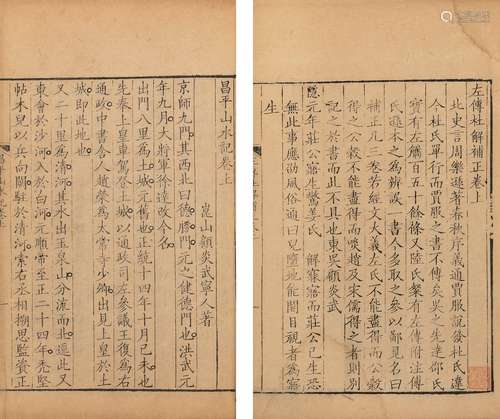 左傳杜解補正卷上
北史言周樂遜著春秋序義通賈服說發杜氏違
今杜氏單行而賈服之書不傳矣吳之先達邵氏
寶有左觿百五十餘條又陸氏粲有左傳附注傅
氏遜本之為辨誤一書今多取之參以鄙見名曰
補正凡三卷若經文大義左氏不能盡得而公穀
得之公穀不能盡得而啖趙及宋儒得之者則別
記之於書而此不具也東吳顧炎武
隱元年莊公寤生驚姜氏 解寤寐而莊公已生恐
無此事應劭風俗通曰兒墮地能開目視者為寤
生
昌平山水記卷上
崑山顧炎武寧人著
京師九門其西北曰德勝門元之健德門也洪武元
年九月大將軍徐達改今名
出門八里為土城元舊也正統十四年十月己未也
先奉上皇車駕登土城以通政司左參議王復為右
通政中書舍人趙榮為大常寺少卿出見上皇於土
城即此地也
又二十里為清河其水出玉泉山分流而北遶此又
東會於沙河入於白河元順帝至正二十四年禿堅
帖木兒以兵向闕駐於清河索右丞相搠思監資正